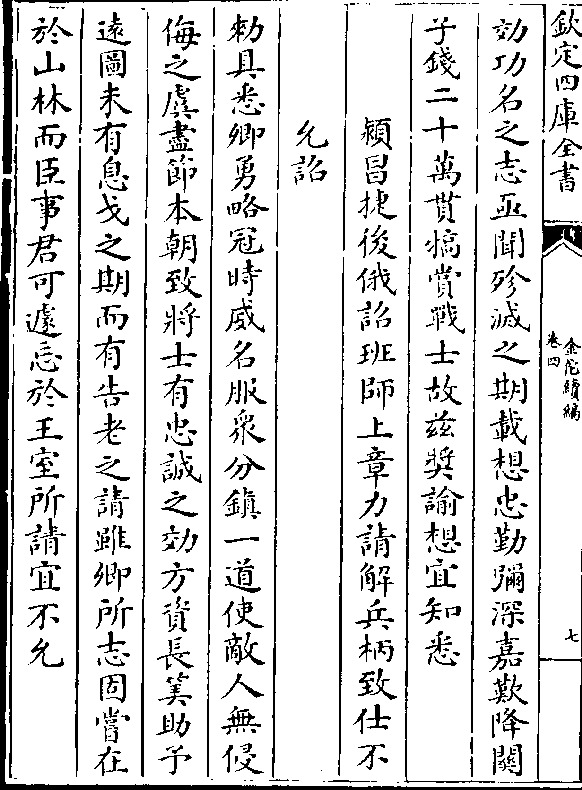 欽定四庫全書
金佗續編
卷四
七
効功名之志亟聞殄滅之期載想忠勤彌深嘉歎降關
子錢二十萬貫犒賞戰士故兹奬諭想宜知悉
頴昌捷後俄詔班師上章力請解兵柄致仕不
允詔
勅具悉卿勇略冠時威名服衆分鎮一道使敵人無侵
侮之虞盡節本朝致將士有忠誠之効方資長筭助予
逺圖未有息戈之期而有告老之請雖卿所志固嘗在
於山林而臣事君可遽忘於王室所請宜不允